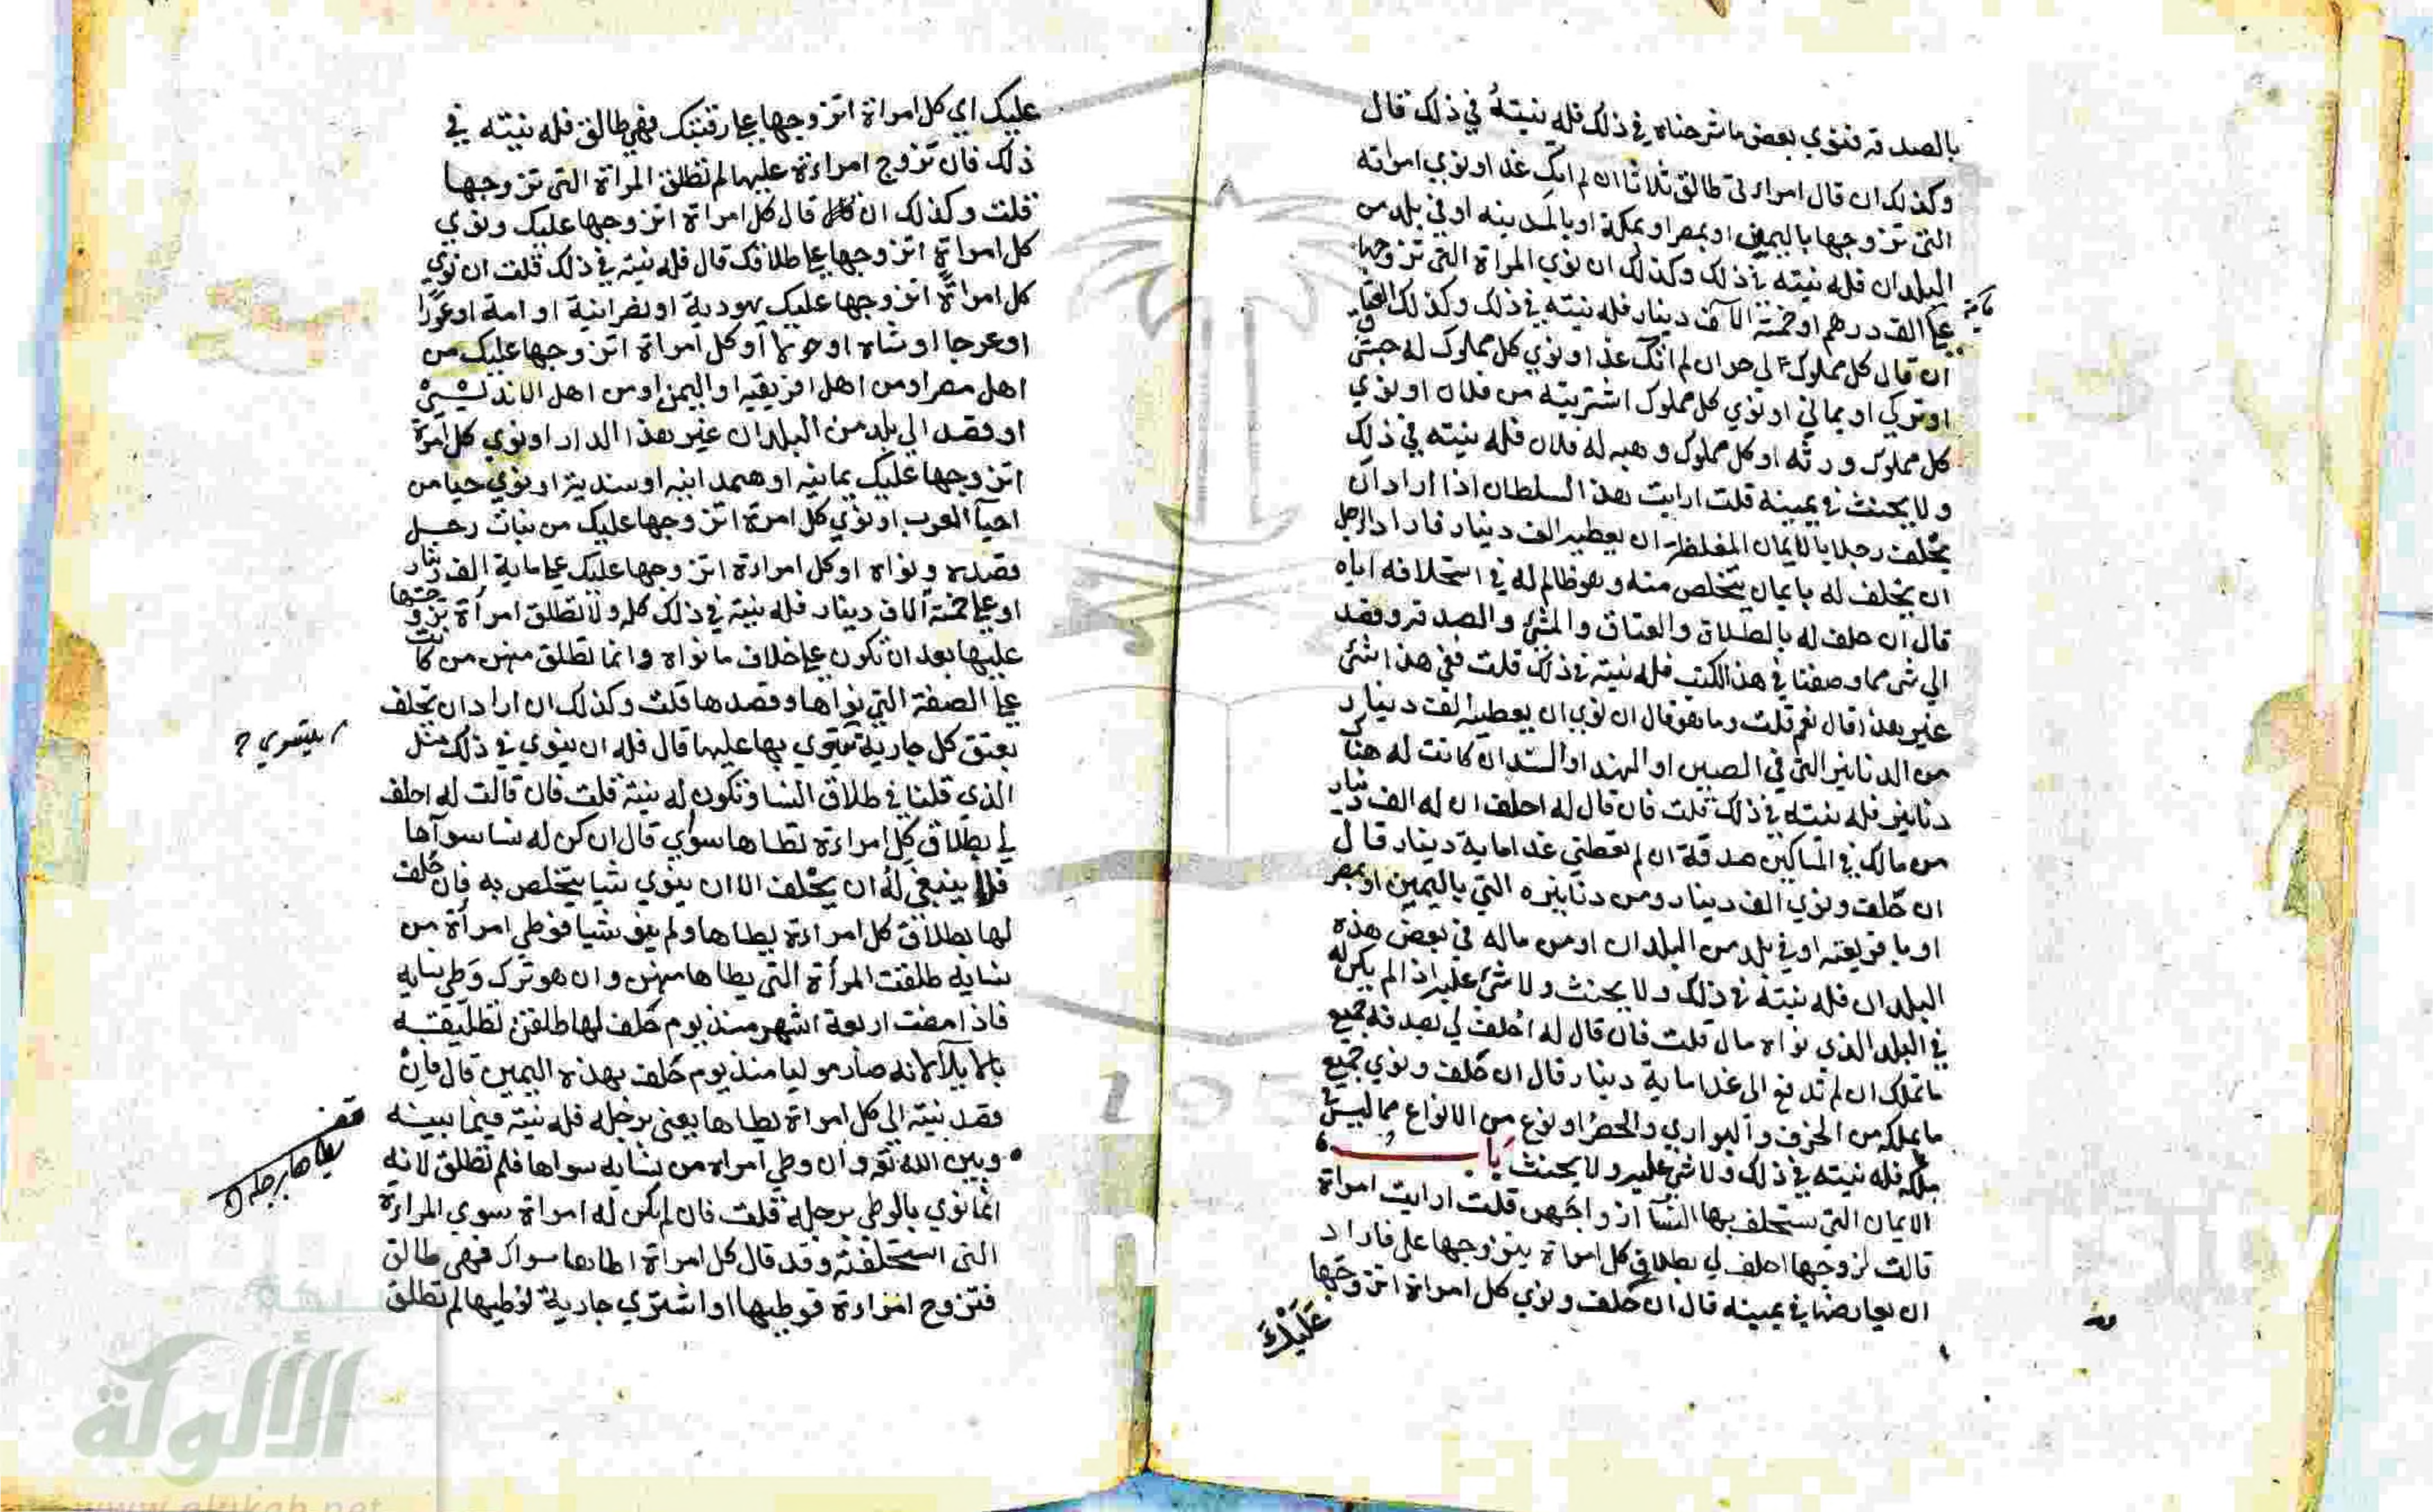 بالصدقة فنوي بعض ما شرحناه في ذلك فله نيتهُ في ذلك قال
وكذلك ان قال امراءتي طالق ثلاثا ان لم اتك غدا ونوي امراته
التي تزوجها باليمن او بمصر او بمكة او بالمدينه او في بلد من
البلدان فله نيته في ذلك وكذلك ان نوي المراة التي تزوجها
علي الف درهم او خمسة الآف دينار فله نيته في ذلك وكذلك
ان قال كل مملوك لي حر ان لم اتك غدا ونوي كل مملوك له حبشي
او تركي او يماني او نوي كل مملوك اشتريته من فلان او نوي
كل مملوك ورثه او كل مملوك وهبه له فلان فله نيته في ذلك
ولا يحنث في يمينه قلت ارايت هذا السلطان اذا اراد ان
يحلف رجلا بالايمان المغلظة ان يعطيه الف دينار فاراد الرجل
ان يحلف له بايمان يتخلص منه وهو ظالم له في استحلافه اياه
قال ان حلف له بالطلاق والعتاق والمشي والصدقة وقصد
الي شي مما وصفنا في هذا الكتب فله نيته في ذلك قلت ففي هذا شي
غير هذا قال نعم قلت وما هو قال ان نوي ان يعطيه الف دينار
من الدنانير التي في الصين او الهند او السند ان كانت له هناك
دنانير فله نيته في ذلك قلت فان قال له احلف ان له الف دينار
من مالك في المساكين صدقة ان لم تعطني غدا ماية دينار قال
ان حلف ونوي الف دينار ومن دنانيره التي باليمن او بمصر
او بافريقيه او في بلد من البلدان او من ماله في بعض هذه
البلدان فله نيته في ذلك ولا يحنث ولا شي عليه اذا لم يكن له
في البلد الذي نواه مال قلت فان قال له احلف لي بصدقة جميع
ما تملك ان لم تدفع الي غدا ماية دينار قال ان حلف ونوي جميع
ما يملكه من الخزف والبواري والحصر او نوع من الانواع مما ليس في
ملكه فله نيته في ذلك ولا شي عليه ولا يحنث باب
الايمان التي تستحلف بها النسآ ازواجهن قلت ارايت امراة
قالت لزوجها احلف لي بطلاق كل امراة يتزوجها علي فاراد
ان يعارضها في يمينه قال ان حلف ونوي كل امراة اتزوجها
عَلَيْكَ
عليك اي كل امراة اتزوجها علي رقبتك فهي طالق فله نيته في
ذلك فان تزوج امراءة عليها لم تطلق المراة التي تزوجها
قلت وكذلك ان قال كل امراة اتزوجها عليك ونوي
كل امراةٍ اتزوجها علي طلاقك قال فله نيته في ذلك قلت ان نوي
كل امراةً اتزوجها عليك يهودية او نصرانية او امة او عورا
او عرجا او شاه او حولا او كل امراة اتزوجها عليك من
اهل مصر او من اهل افريقيه او اليمن او من اهل الاندلس
او قصد الي بلد من البلدان غير هذا الدار او نوي كل امرة
اتزوجها عليك يمانيه او همدانيه او سندية او نوي حيا من
احيآ العرب او نوي كل امرة اتزوجها عليك من بنات رجل
قصده ونواه او كل امراءة اتزوجها عليك علي ماية الف دينار
او علي خمسة الاف دينار فله نيته في ذلك كله ولا تطلق امرأة تزوجها
عليها بعد ان تكون علي خلاف ما نواه وانما تطلق منهن من كانت
علي الصفة التي نواها وقصدها قلت وكذلك ان اراد ان يحلف
بعتق كل جارية يتسري بها عليها قال فله ان ينوي في ذلك مثل
يتسري
الذي قلنا في طلاق النسا وتكون له نيته قلت فان قالت له احلف
لي بطلاق كل امراءة تطاها سوي قال ان كن له نسا سواها
فلا ينبغي له ان يحلف الا ان ينوي شيا يتخلص به فان حلف
لها بطلاق كل امراءة يطاها ولم ينو شيا فوطي امرأة من
نسايه طلقت المرأة التي يطاها منهن وان هو ترك وطي نسايه
فاذا مضت اربعة اشهر منذ يوم حلف لها طلقن تطليقه
بالايلآ لانه صار موليا منذ يوم حلف بهذه اليمين قال فان
قصد نيته الي كل امراة يطاها يعني برجله فله نيته فيما بينه
يطاها برجله
وبين الله تع وان وطي امراه من نسايه سواها فلم تطلق لانه
انما نوي بالوطي برجله قلت فان لم يكن له امراة سوي المراءة
التي استحلفته وقد قال كل امراة اطاها سواك فهي طالق
فتزوج امراءة فوطيها او اشتري جارية فوطيها لم تطلق
الألوكة
www.alukah.net